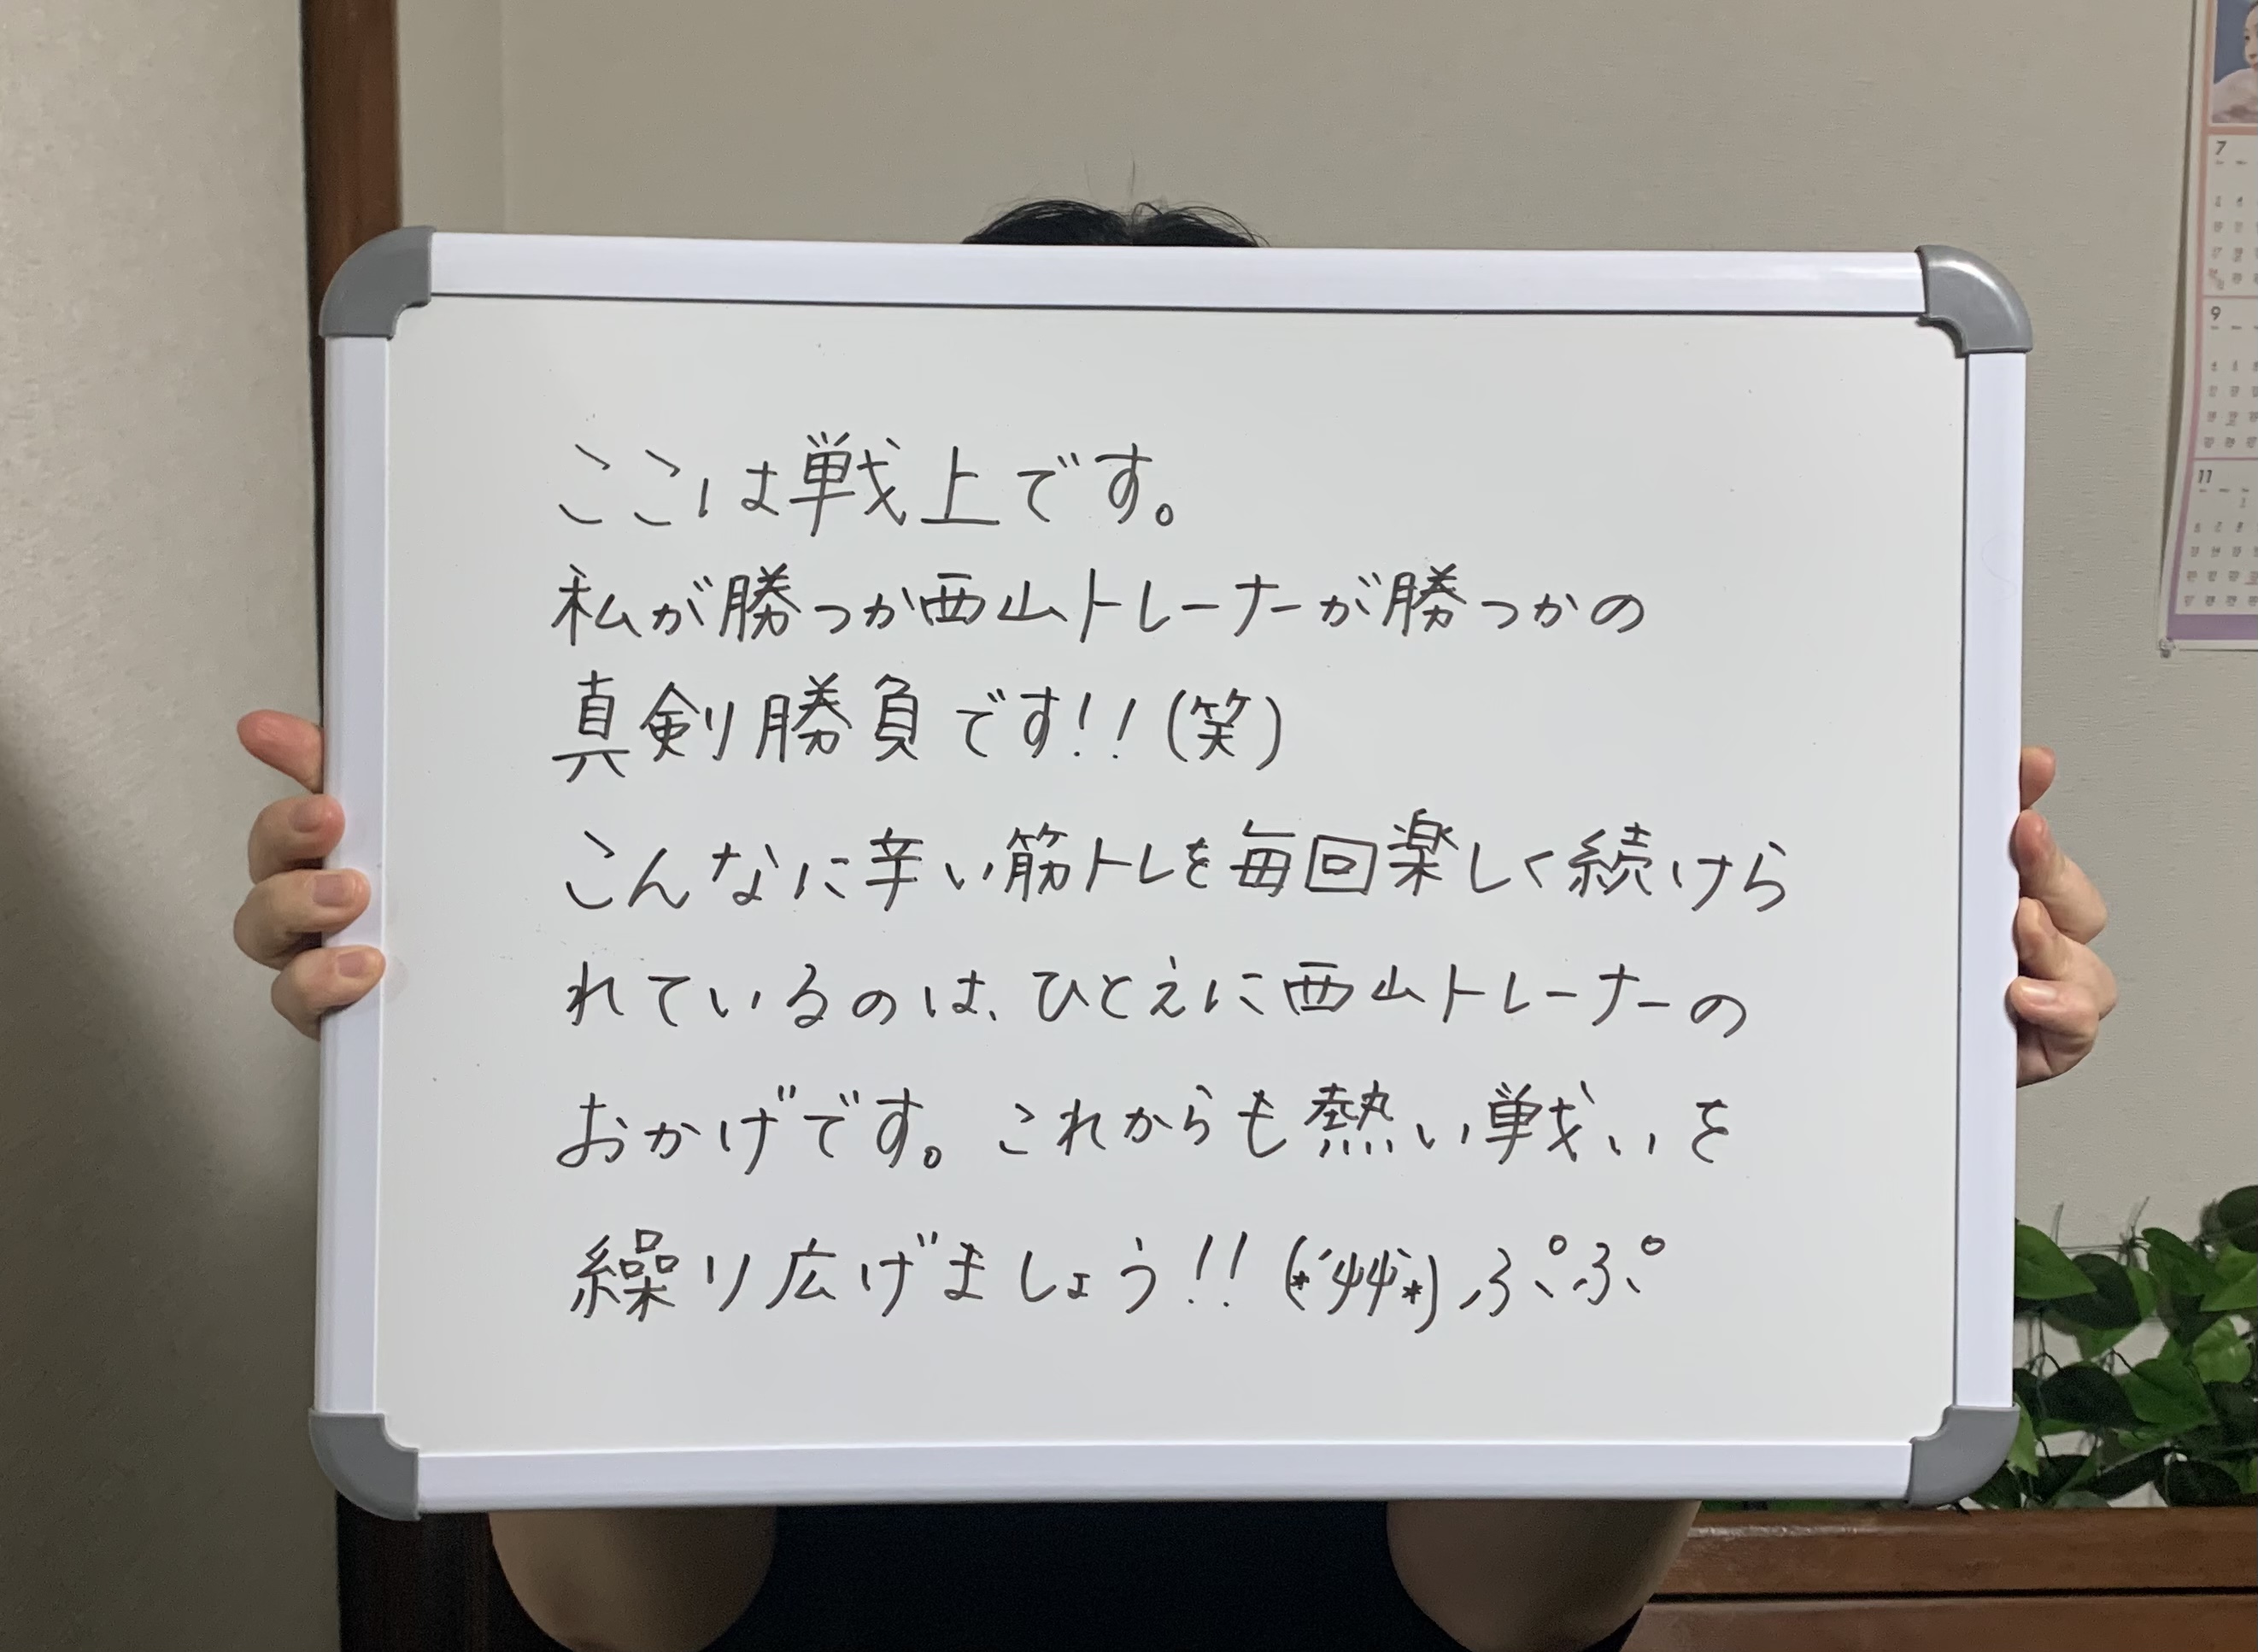 ここは戦上です。
私が勝つか西山トレーナーが勝つかの
真剣勝負です!!(笑)
こんなに辛い筋トレを毎回楽しく続けら
れているのは、ひとえに西山トレーナーの
おかげです。これからも熱い戦いを
繰り広げましょう!!(*´艸`*)ぷぷ
7
9
11